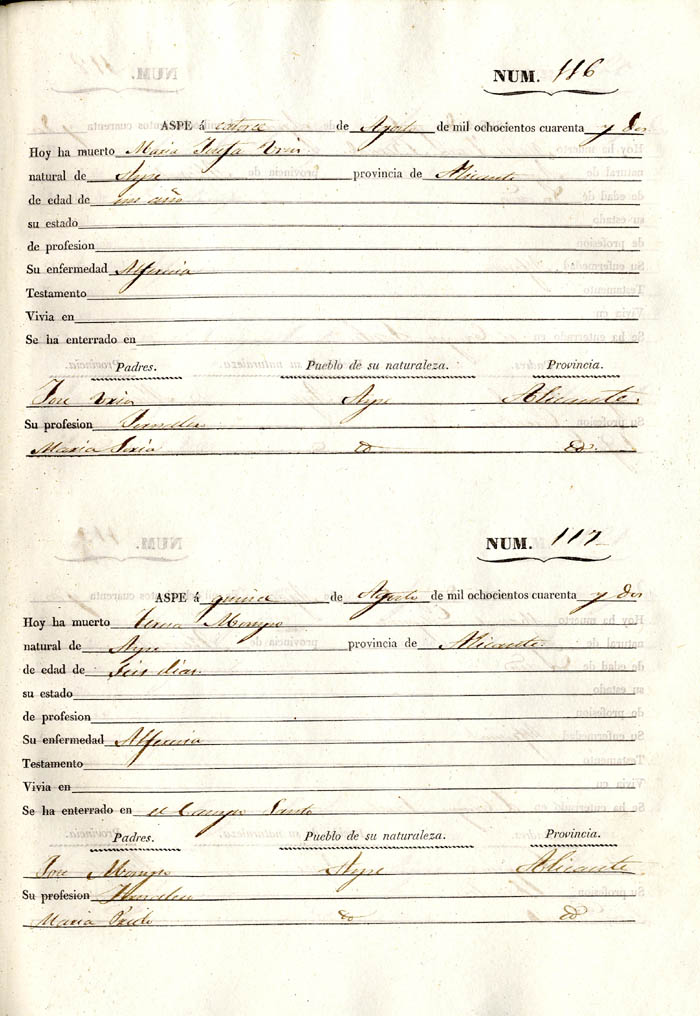 NUM. 116
ASPE á catorce de Agosto de mil ochocientos cuarenta y dos
Hoy ha muerto Maria Josefa
natural de Aspe provincia de Alicante
de edad de un año
su estado
de profesion
Su enfermedad Alferecia
Testamento
Vivia en
Se ha enterrado en
Padres. Pueblo de su naturaleza. Provincia.
Jose Aspe Alicante
Su profesion Jornalero
Maria do do
NUM. 117
ASPE á quince de Agosto de mil ochocientos cuarenta y dos
Hoy ha muerto Teresa
natural de Aspe provincia de Alicante
de edad de seis dias
su estado
de profesion
Su enfermedad Alferecia
Testamento
Vivia en
Se ha enterrado en el Campo Santo
Padres. Pueblo de su naturaleza. Provincia.
Jose Aspe Alicante
Su profesion Jornalero
Maria do do